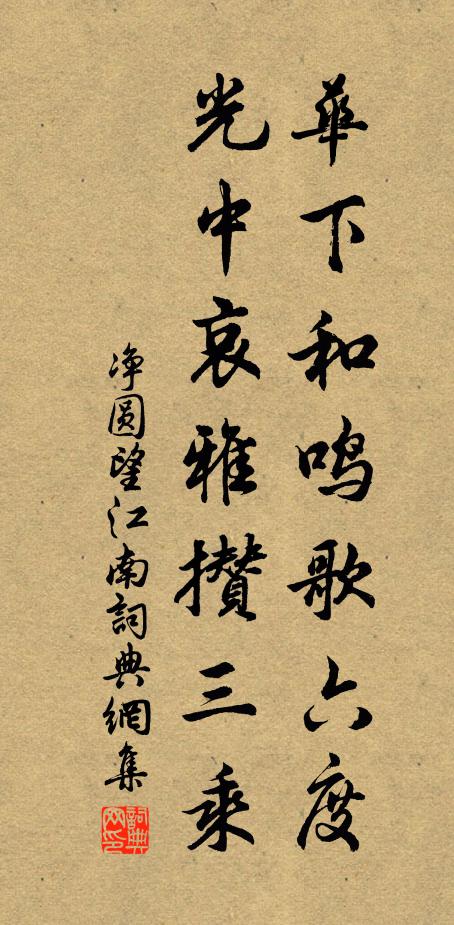 華下和鸣歌六度
光中哀雅攢三乘
净圓望江南詞典網集
詞典网印